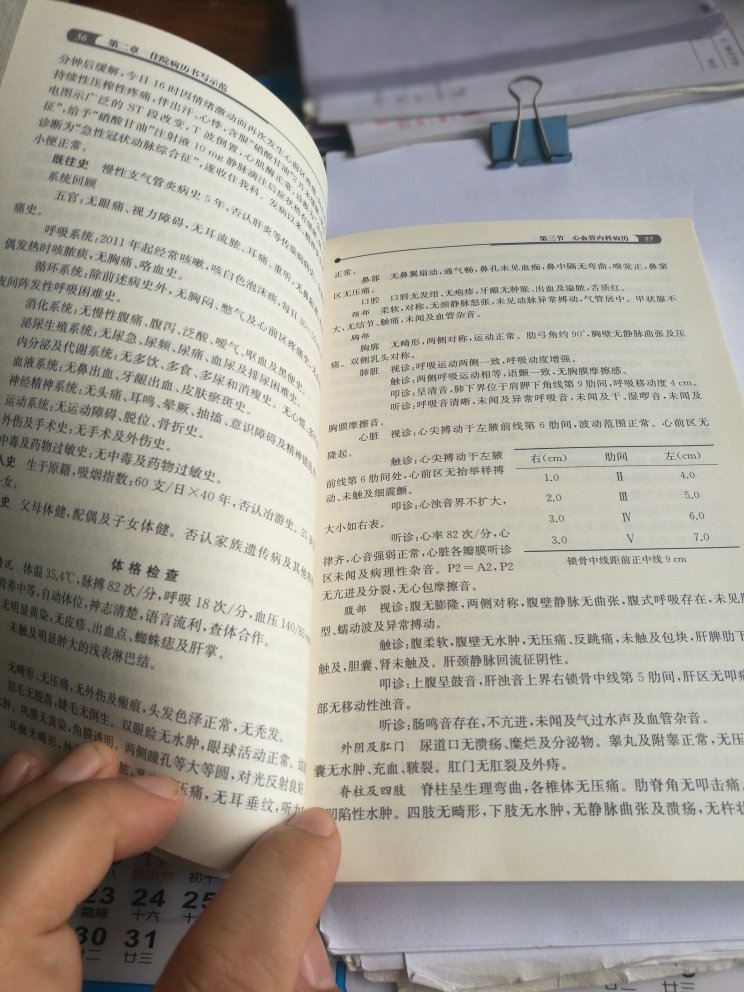 56 第二章 住院病历书写示范
分钟后缓解,今日16时因情绪激动而再次发生心前区疼
持续性压榨性疼痛,伴出汗、心悸,含服“硝酸甘油”2片
电图示广泛的ST段改变,T波倒置,心肌酶正常,诊断为
征”,给予“硝酸甘油”注射液10mg静脉滴注后症状稍有
诊断为“急性冠状动脉综合征”,遂收住我科。发病以来,
小便正常。
既往史 慢性支气管炎病史5年,否认肝炎等传染病病
系统回顾
五官:无眼痛、视力障碍,无耳流脓、耳痛、重听,无鼻
痛史。
呼吸系统:2011年起经常咳嗽,咳白色泡沫痰,每日
偶发热时咳脓痰,无胸痛、咯血史。
循环系统:除前述病史外,无胸闷、憋气及心前区疼痛史,
夜间阵发性呼吸困难史。
消化系统:无慢性腹痛、腹泻、泛酸、嗳气、呕血及黑便史。
泌尿生殖系统:无尿急、尿频、尿痛、血尿及排尿困难史。
内分泌及代谢系统:无多饮、多食、多尿和消瘦史。无心慌、多
血液系统:无鼻出血、牙龈出血、皮肤瘀斑史。
神经精神系统:无头痛、耳鸣、晕厥、抽搐、意识障碍及精神错乱
运动系统:无运动障碍、脱位、骨折史。
外伤及手术史:无手术及外伤史。
中毒及药物过敏史:无中毒及药物过敏史。
人史 生于原籍,吸烟指数:60支/日×40年,否认冶游史。25岁
女。
史 父母体健,配偶及子女体健。否认家族遗传病及其他
体格检查
情况 体温35.4℃,脉搏82次/分,呼吸18次/分,血压140/85
营养中等,自动体位,神志清楚,语言流利,查体合作。
无明显黄染,无皮疹、出血点、蜘蛛痣及肝掌。
未触及明显肿大的浅表淋巴结。
无畸形、无压痛,无外伤及瘢痕,头发色泽正常,无秃发。
眉毛无脱落,睫毛无倒生。双眼睑无水肿,眼球活动正常,结
水肿、巩膜无黄染,角膜透明。两侧瞳孔等大等圆,对光反射良好
耳廓无畸形,外
压痛,无耳垂纹,听力
第三节 心血管内科病历 57
正常。
鼻部 无鼻翼扇动,通气畅,鼻孔未见血痂,鼻中隔无弯曲,嗅觉正,鼻窦
区无压痛。
口腔 口唇无发绀、无疱疹,牙龈无肿胀、出血及溢脓,舌质红。
颈部 柔软,对称,无颈静脉怒张,未见动脉异常搏动,气管居中。甲状腺不
大,无结节、触痛,未闻及血管杂音。
胸部
胸廓 无畸形,两侧对称,运动正常。肋弓角约90°,胸壁无静脉曲张及压
痛。双侧乳头对称。
肺脏 视诊:呼吸运动两侧一致,呼吸动度增强。
触诊:两侧呼吸运动相等,语颤一致,无胸膜摩擦感。
叩诊:呈清音,肺下界位于肩胛下角线第9肋间,呼吸移动度4cm。
听诊:呼吸音清晰,未闻及异常呼吸音,未闻及干、湿啰音,未闻及
胸膜摩擦音。
心脏 视诊:心尖搏动于左腋前线第6肋间,波动范围正常。心前区无
隆起。
触诊:心尖搏动于左腋
前线第6肋间处,心前区无抬举样搏
动、未触及细震颤。
叩诊:心浊音界不扩大,
大小如右表。
听诊:心率82次/分,心
律齐,心音强弱正常,心脏各瓣膜听诊
区未闻及病理性杂音。P2=A2,P2
无亢进及分裂,无心包摩擦音。
右(cm) 肋间 左(cm)
1.0 Ⅱ 4.0
2.0 Ⅲ 5.0
3.0 Ⅳ 6.0
3.0 Ⅴ 7.0
锁骨中线距前正中线9cm
腹部 视诊:腹无膨隆,两侧对称,腹壁静脉无曲张,腹式呼吸存在,未见
型、蠕动波及异常搏动。
触诊:腹柔软,腹壁无水肿,无压痛、反跳痛,未触及包块,肝脾肋下
触及,胆囊、肾未触及。肝颈静脉回流征阴性。
叩诊:上腹呈鼓音,肝浊音上界右锁骨中线第5肋间,肝区无叩
部无移动性浊音。
听诊:肠鸣音存在,不亢进,未闻及气过水声及血管杂音。
外阴及肛门 尿道口无溃疡、糜烂及分泌物。睾丸及附睾正常,无压
囊无水肿、充血、皲裂。肛门无肛裂及外痔。
脊柱及四肢 脊柱呈生理弯曲,各椎体无压痛。肋脊角无叩击痛。
凹陷性水肿。四肢无畸形,下肢无水肿,无静脉曲张及溃疡,无杵状
重阳节
23 24 25
霜降 十六
30 31
廿二 廿三